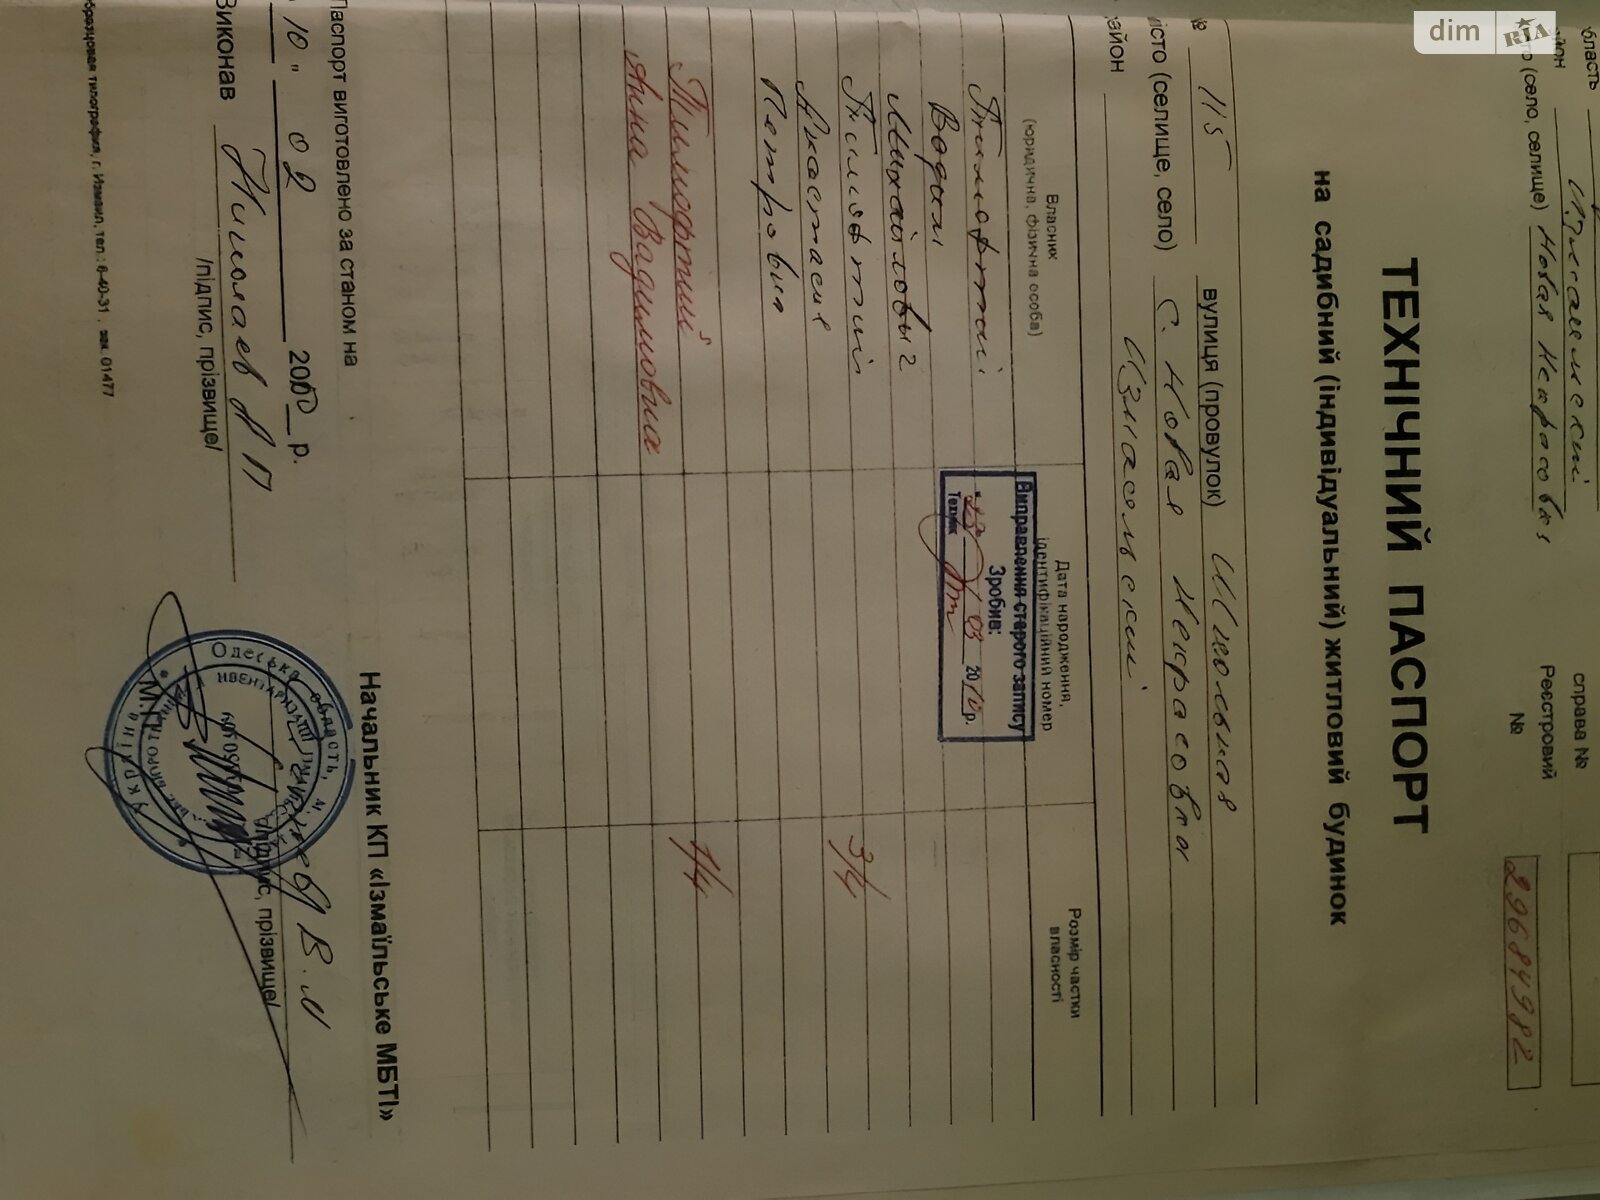 dim RIA
область
район Измаильский
місто (село, селище) Новая Некрасовка
справа №
Реєстровий
№ 29684982
ТЕХНІЧНИЙ ПАСПОРТ
на садибний (індивідуальний) житловий будинок
№ 115 вулиця (провулок) Школьная
місто (селище, село) с. Новая Некрасовка
район Измаильский
Власник
(юридична, фізична особа)
Дата народження,
ідентифікаційний номер
Розмір частки
власності
Вадим
Михайлович
Виправлення старого запису
Зробив:
03 2010 р.
Технік
Анастасия 3/4
Петровна
Тимофтий 1/4
Анна Вадимовна
Паспорт виготовлено за станом на
"10" 02 2000 р.
Виконав Николаев А П
/підпис, прізвище/
Начальник КП «Ізмаїльське МБТІ»
В. И
/підпис, прізвище/
М.П.
Одеська область, м.
Україна
образцовая типография, г. Измаил, тел.: 6-40-31, зак. 01477